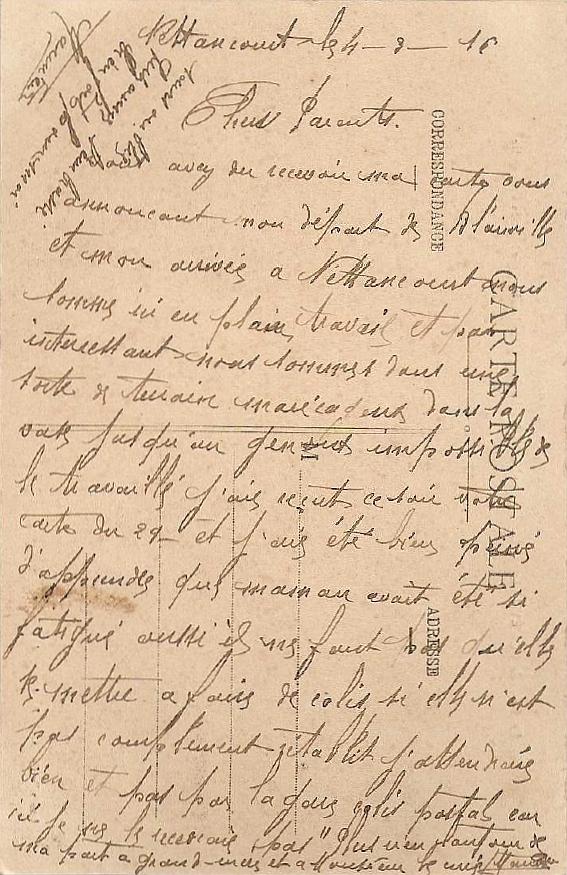 Nettancourt le 4-3-16
Chers Parents.
vous avez du recevoir ma carte vous
annoncant mon départ de Blainville
et mon arrivée a Nettancourt nous
sommes ici en plain travail et pas
interressant nous sommes dans une
sorte de terrain marécageux dans la
vase jusqu'au genoux impossible de
le travaillé j'ais recut ce soir votre
carte du 29 et j'ais été bien peiné
d'apprendre que maman avait été si
fatigué aussi il ne faut pas qu'elle
se mettre a faire de colis si elle n'est
pas complement rétablit j'attendrais
bien et pas par la gare colis postal car
ici je ne le recevrais pas Plus rien
ma part a grand-mère et a Monsieur le curé
tous
CARTE POSTALE
CORRESPONDANCE
ADRESSE
M